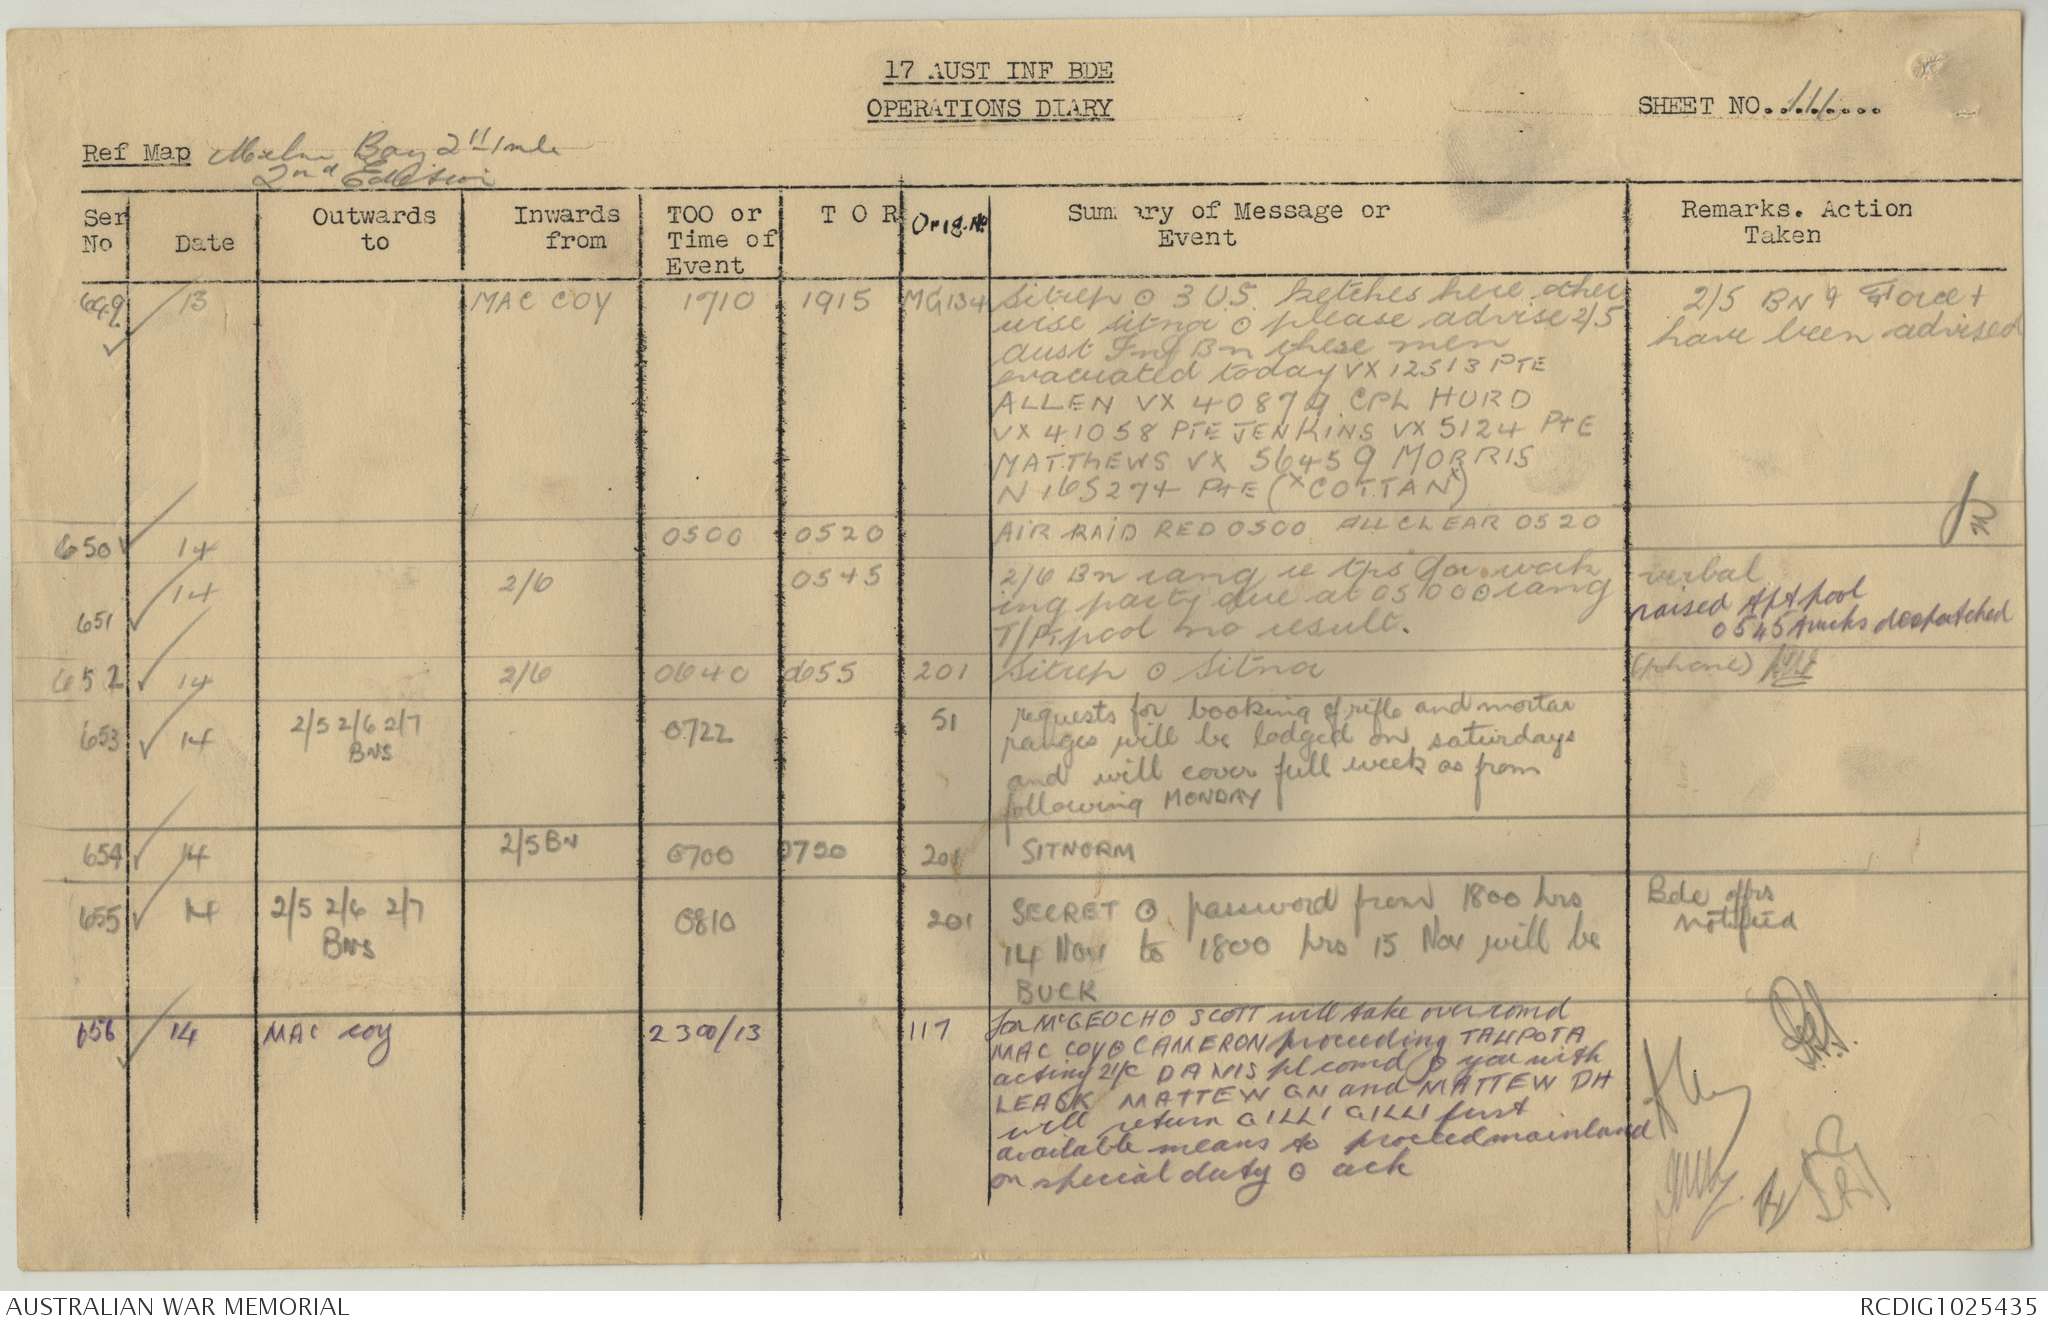 17 AUST INF BDE
OPERATIONS DIARY
SHEET NO.
Ref Map Bay 2"1 mile
2nd Edition
Ser No
Date
Outwards to
Inwards from
TOO or Time of Event
T O R
Orig. No
Summary of Message or Event
Remarks. Action Taken
649 13 MAC COY 1710 1915 MG134
Sitrep ⊙ 3 U.S. ketches here other
wise sitna ⊙ please advise 2/5
Aust Inf Bn these men
evacuated today VX 12513 PTE
ALLEN VX 40879 CPL HURD
VX 41058 PTE JENKINS VX 5124 PTE
MATTHEWS VX 56459 MORRIS
N 165274 PTE (x COTTAN x)
2/5 BN &
have been advised
650 14 0500 0520 AIR RAID RED 0500 ALL CLEAR 0520
651 14 2/6 0545
2/6 Bn rang re tps for work
ing party due at 0500 ⊙ rang
T/Ptpool no result.
verbal
raised Tpt pool
0545 trucks despatched
652 14 2/6 0640 0655 201 Sitrep ⊙ Sitna (phone)
653 14 2/5 2/6 2/7 BNS 0722 51
requests for booking of rifle and mortar
ranges will be lodged on saturdays
and will cover full week as from
following MONDAY
654 14 2/5 BN 0700 0730 201 SITNORM
655 14 2/5 2/6 2/7 BNS 0810 201
SECRET ⊙ password from 1800 hrs
14 Nov to 1800 hrs 15 Nov will be
BUCK
Bde offrs
notified
656 14 MAC COY 2300/13 117
for McGEOCH ⊙ SCOTT will take over comd
MAC COY ⊙ CAMERON proceeding TAUPOTA
acting 2i/c DAVIS pl comd ⊙ you with
LEASK MATTEW GN and MATTEW DH
will return GILLI GILLI first
available means to proceed mainland
on special duty ⊙ ack
AUSTRALIAN WAR MEMORIAL
RCDIG1025435